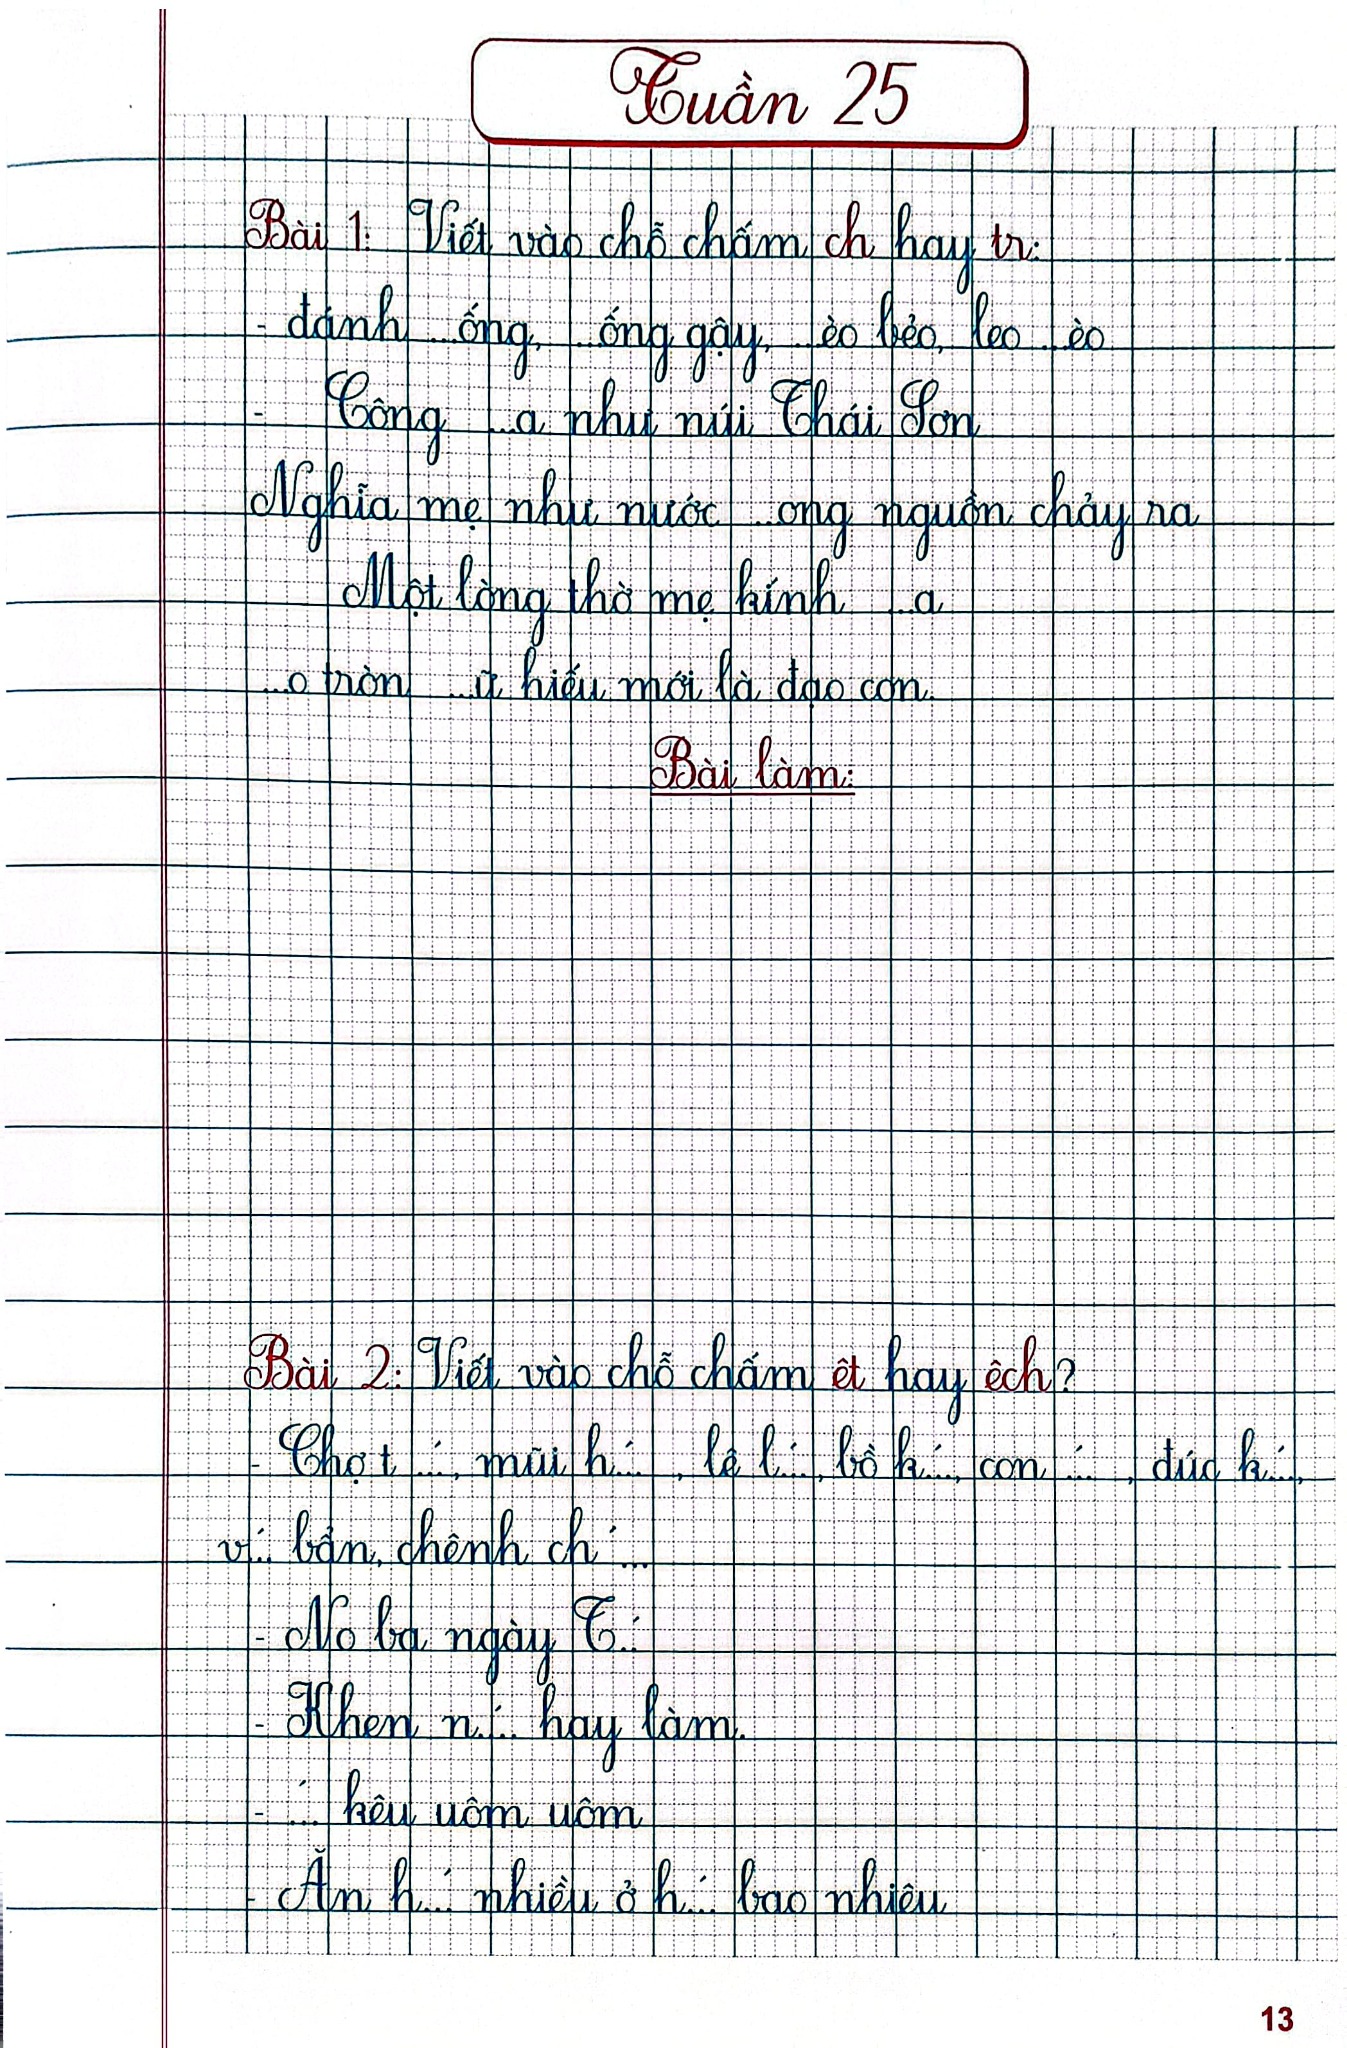 Tuần 25
Bài 1: Viết vào chỗ chấm ch hay tr:
- đánh ...ống, ...ống gậy, ...èo bẻo, leo ...èo
- Công ...a như núi Thái Sơn
Nghĩa mẹ như nước ...ong nguồn chảy ra
Một lòng thờ mẹ kính ...a
...o tròn ...ữ hiếu mới là đạo con.
Bài làm:
Bài 2: Viết vào chỗ chấm êt hay êch?
- Chợ t...́, mũi h...́, lê l...́, bồ k...́, con ...́, đúc k...́,
v...́ bẩn, chênh ch...́
- No ba ngày T...́
- Khen n...́ hay làm.
- ...́ kêu uôm uôm
- Ăn h...́ nhiều ở h...́ bao nhiêu
13